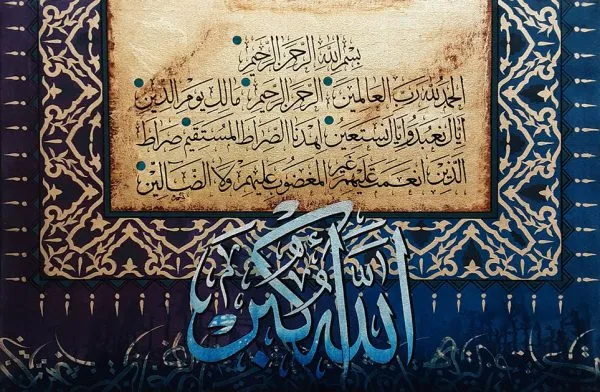 بسم الله الرحمن الرحيم
الحمد لله رب العالمين الرحمن الرحيم مالك يوم الدين
إياك نعبد وإياك نستعين اهدنا الصراط المستقيم صراط
الذين أنعمت عليهم غير المغضوب عليهم ولا الضالين
الله أكبر